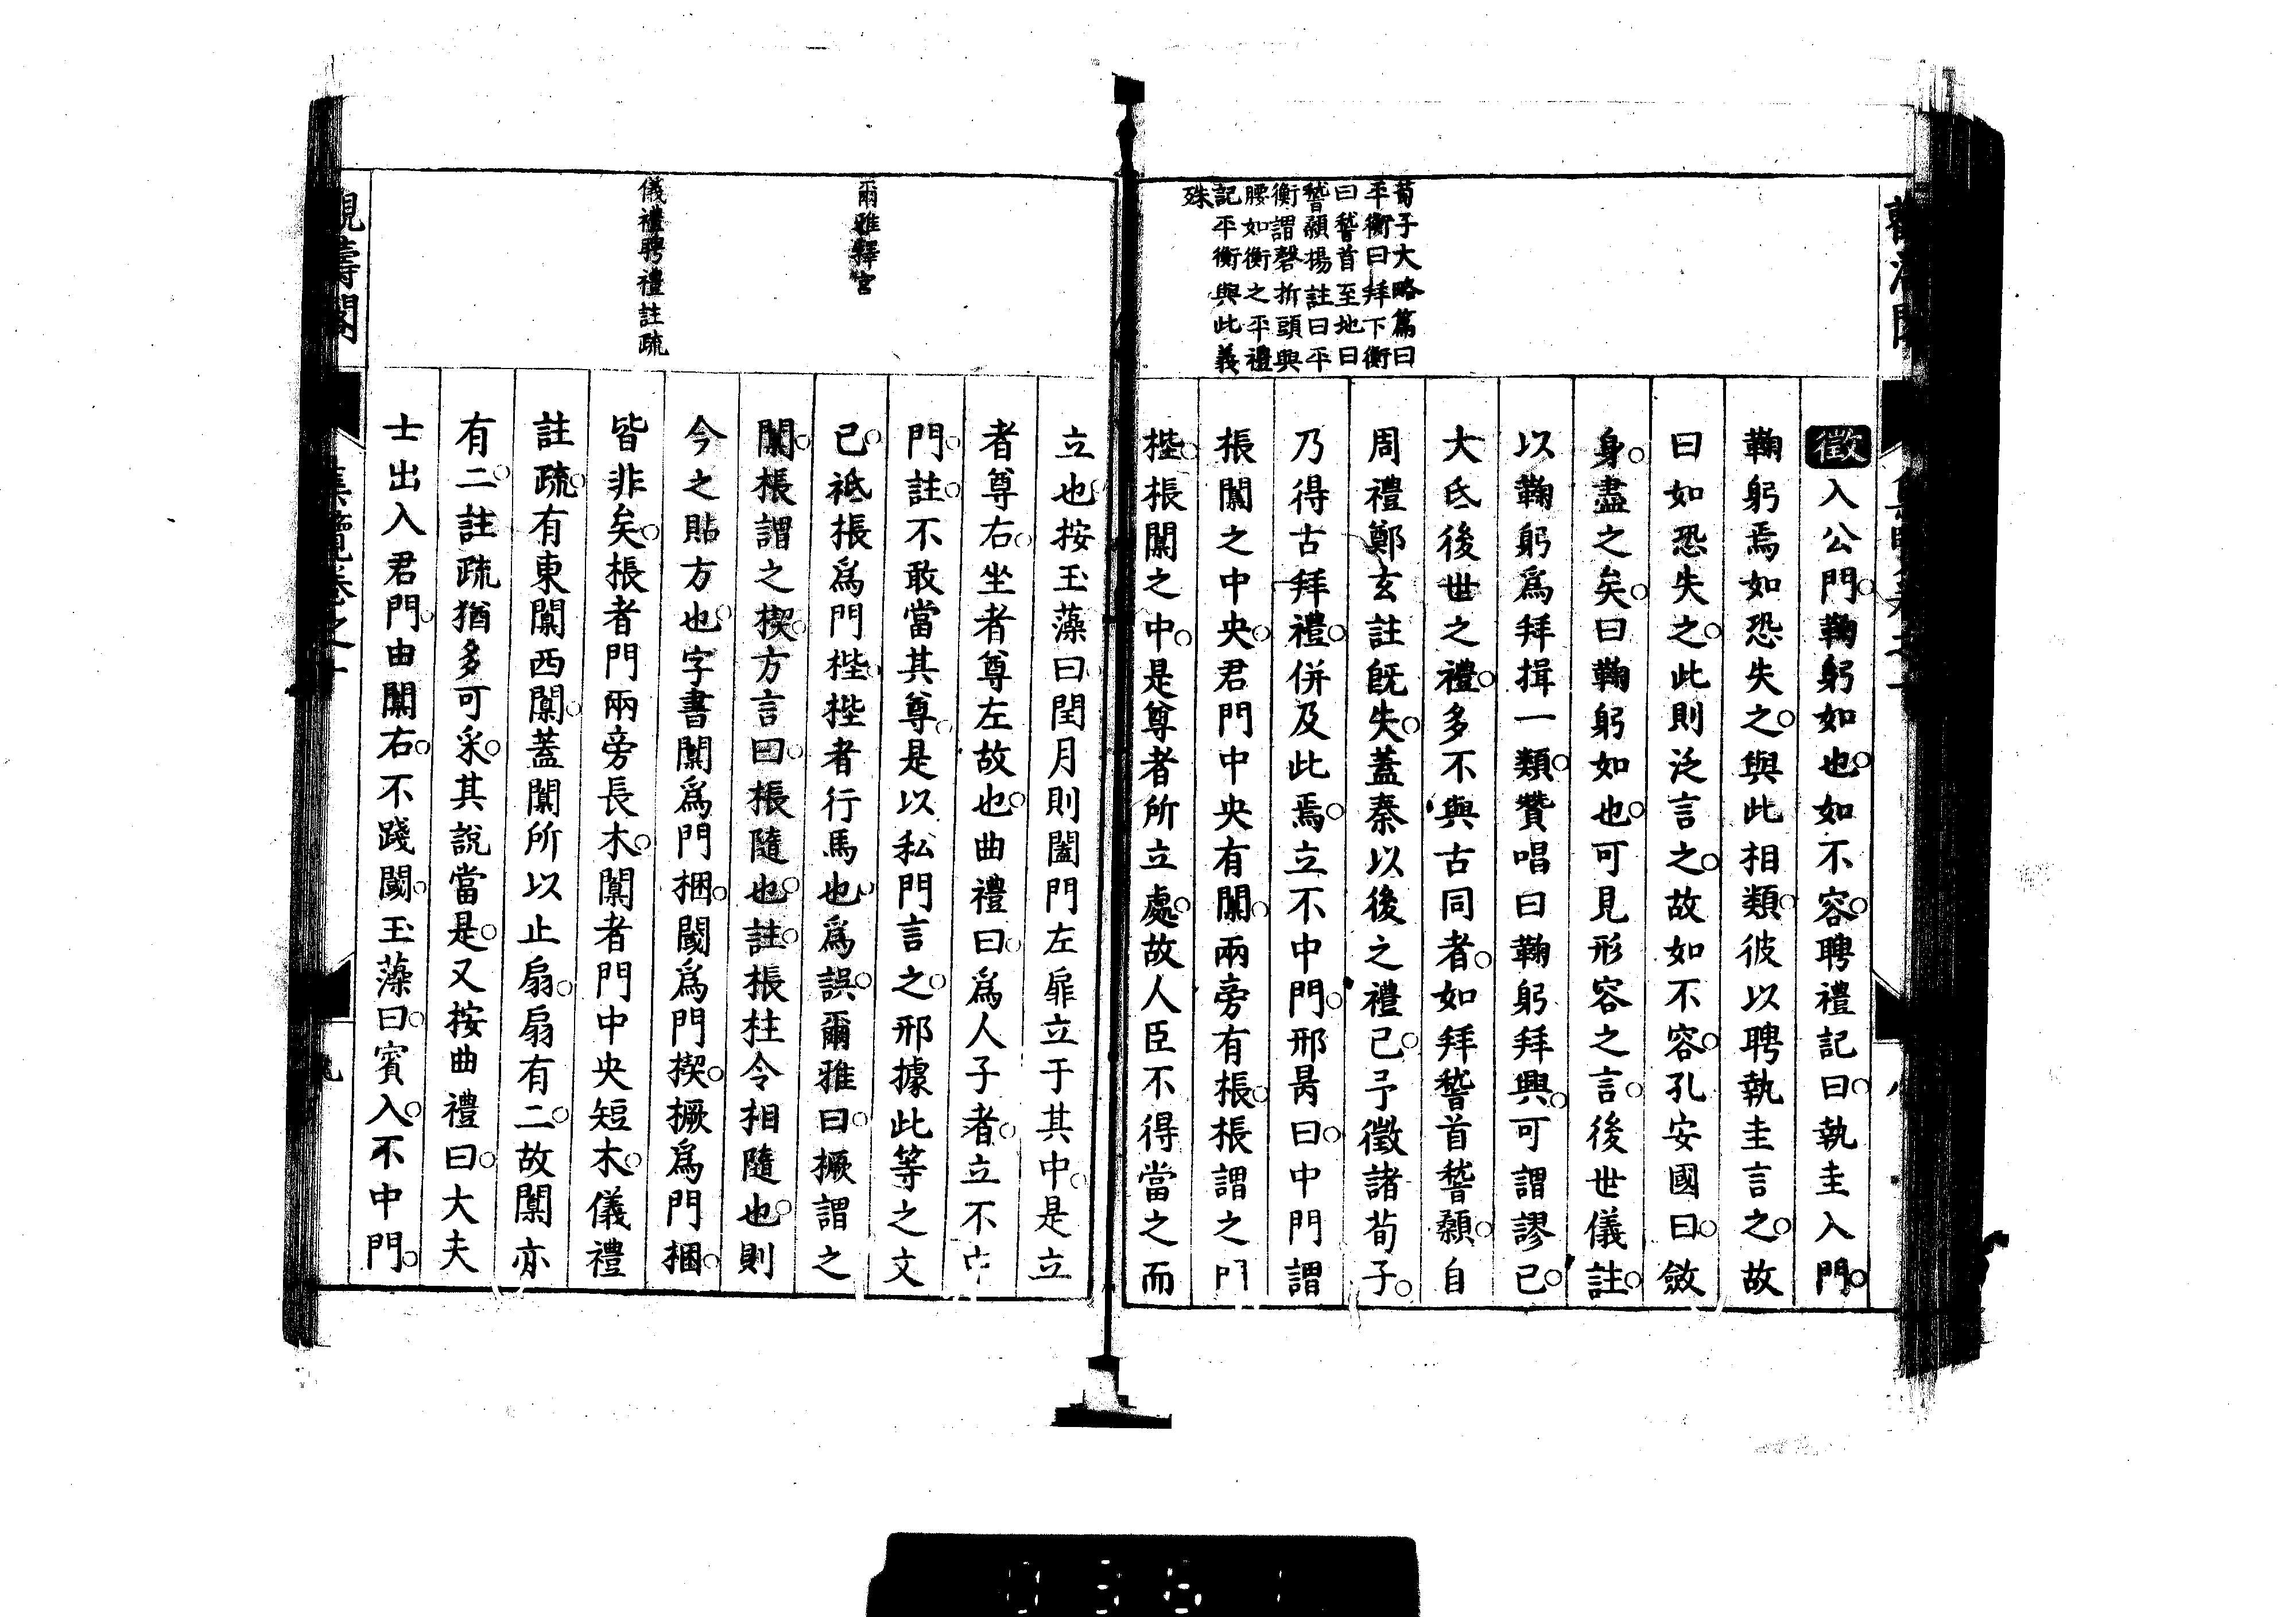 荀子大略篇曰
平衡曰拜下衡
曰稽首至地曰
稽顙楊註曰平
衡謂磬折頭與
腰如衡之平禮
記平衡與此義
殊
徵入公門鞠躬如也如不容聘禮記曰執圭入門
鞠躬焉如恐失之與此相類彼以聘執圭言之故
曰如恐失之此則泛言之故如不容孔安國曰斂
身盡之矣曰鞠躬如也可見形容之言後世儀註
以鞠躬爲拜揖一類贊唱曰鞠躬拜興可謂謬已
大氐後世之禮多不與古同者如拜稽首稽顙自
周禮鄭玄註旣失蓋秦以後之禮已予徵諸荀子
乃得古拜禮併及此焉立不中門邢昺曰中門謂
棖闑之中央君門中央有闑兩旁有棖棖謂之門
梐棖闑之中是尊者所立處故人臣不得當之而
爾雅釋宮
儀禮聘禮註疏
立也按玉藻曰閏月則闔門左扉立于其中是立
者尊右坐者尊左故也曲禮曰爲人子者立不中
門註不敢當其尊是以私門言之邢據此等之文
已祗棖爲門梐梐者行馬也爲誤爾雅曰橛謂之
闑棖謂之楔方言曰棖隨也註棖柱令相隨也則
今之貼方也字書闑爲門梱閾爲門楔橛爲門梱
皆非矣棖者門兩旁長木闑者門中央短木儀禮
註疏有東闑西闑蓋闑所以止扇扇有二故闑亦
有二註疏猶多可采其說當是又按曲禮曰大夫
士出入君門由闑右不踐閾玉藻曰賓入不中門
集覽卷之
九